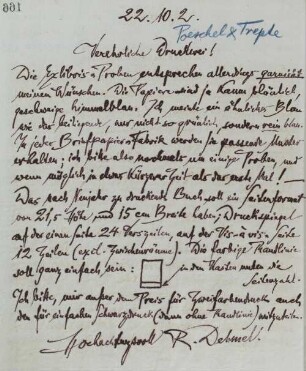 801
22.10.2.
Poeschel & Trepte
Verehrliche Druckerei!
Die Exlibris-Proben entsprechen allerdings garnicht
meinen Wünschen. Die Papiere sind ja kaum bläulich,
geschweige himmelblau. Ich meinte ein ähnliches Blau
wie das beiliegende, nur nicht so grünlich, sondern rein blau.
In jeder Briefpapier-Fabrik werden Sie passende Muster
erhalten; ich bitte also nochmals um einige Proben, und
wenn möglich in etwas kürzerer Zeit als das erste Mal!
Das nach Neujahr zu druckende Buch soll ein Seitenformat
von 21,5 Höhe und 15 cm Breite haben; Druckspiegel
auf der einen Seite 24 Verszeilen, auf der Vis-à-vis-Seite
12 Zeilen (excl. Zwischenräume). Die farbige Randlinie
soll ganz einfach sein: in den Kasten unten die
Seitenzahl.
Ich bitte, mir außer dem Preis für Zweifarbendruck auch
den für einfachen Schwarzdruck (dann ohne Randlinie) mitzuteilen.
Hochachtungsvoll R. Dehmel.